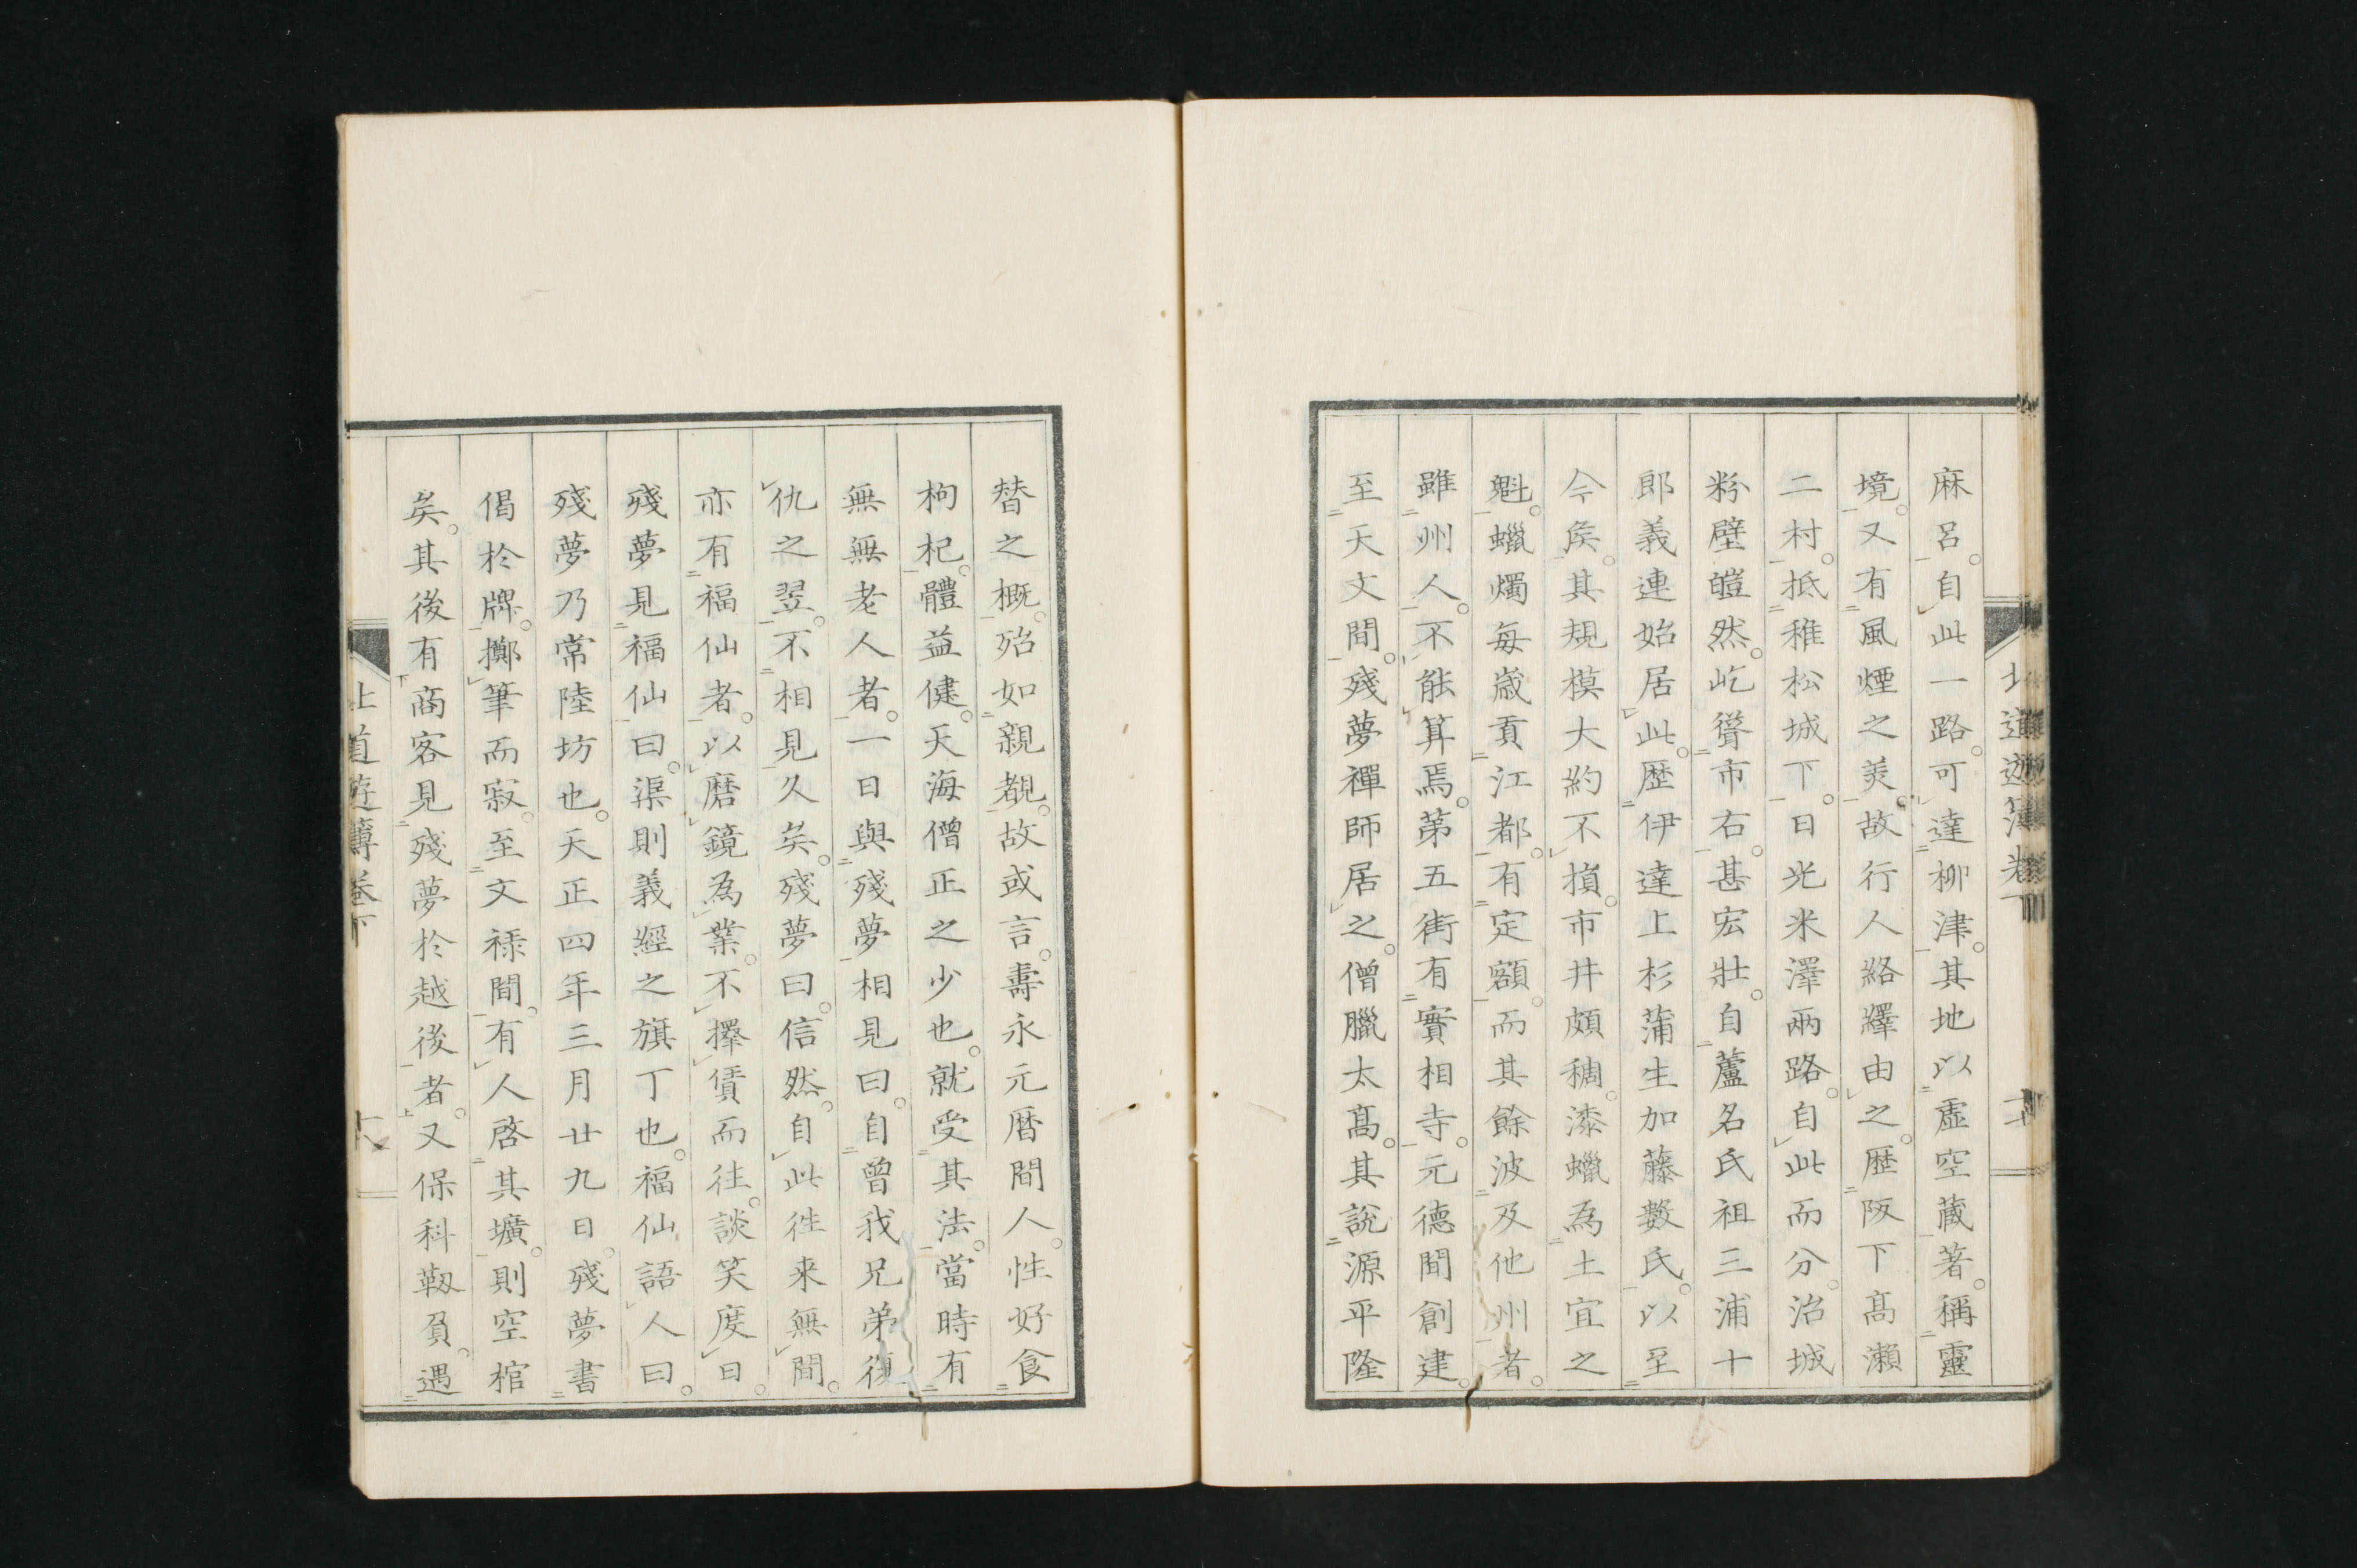 麻呂。自此一路。可達柳津。其地以虛空藏著。稱靈
境。又有風煙之美。故行人絡繹由之。歷阪下高瀨
二村。抵稚松城下。日光米澤兩路。自此而分。治城
粉壁皚然。屹聳市右。甚宏壯。自蘆名氏祖三浦十
郎義連始居此。歷伊達上杉蒲生加藤數氏。以至
今侯。其規模大約不損。市井頗稠。漆蠟為土宜之
魁。蠟燭每歲貢江都。有定額。而其餘波及他州者。
雖州人。不能算焉。第五街有實相寺。元德間創建。
至天文間。殘夢禪師居之。僧臘太高。其說源平隆
替之概。殆如親覩。故或言。壽永元曆間人。性好食
枸杞。體益健。天海僧正之少也。就受其法。當時有
無無老人者。一日與殘夢相見曰。自曾我兄弟復
仇之翌。不相見久矣。殘夢曰。信然。自此徃来無間。
亦有福仙者。以磨鏡為業。不擇賃而往。談笑度日。
殘夢見福仙曰。渠則義經之旗丁也。福仙語人曰。
殘夢乃常陸坊也。天正四年三月廿九日。殘夢書
偈於牌。擲筆而寂。至文祿間。有人啓其壙。則空棺
矣。其後有商客見殘夢於越後者。又保科靱負。遇
北道遊簿卷下